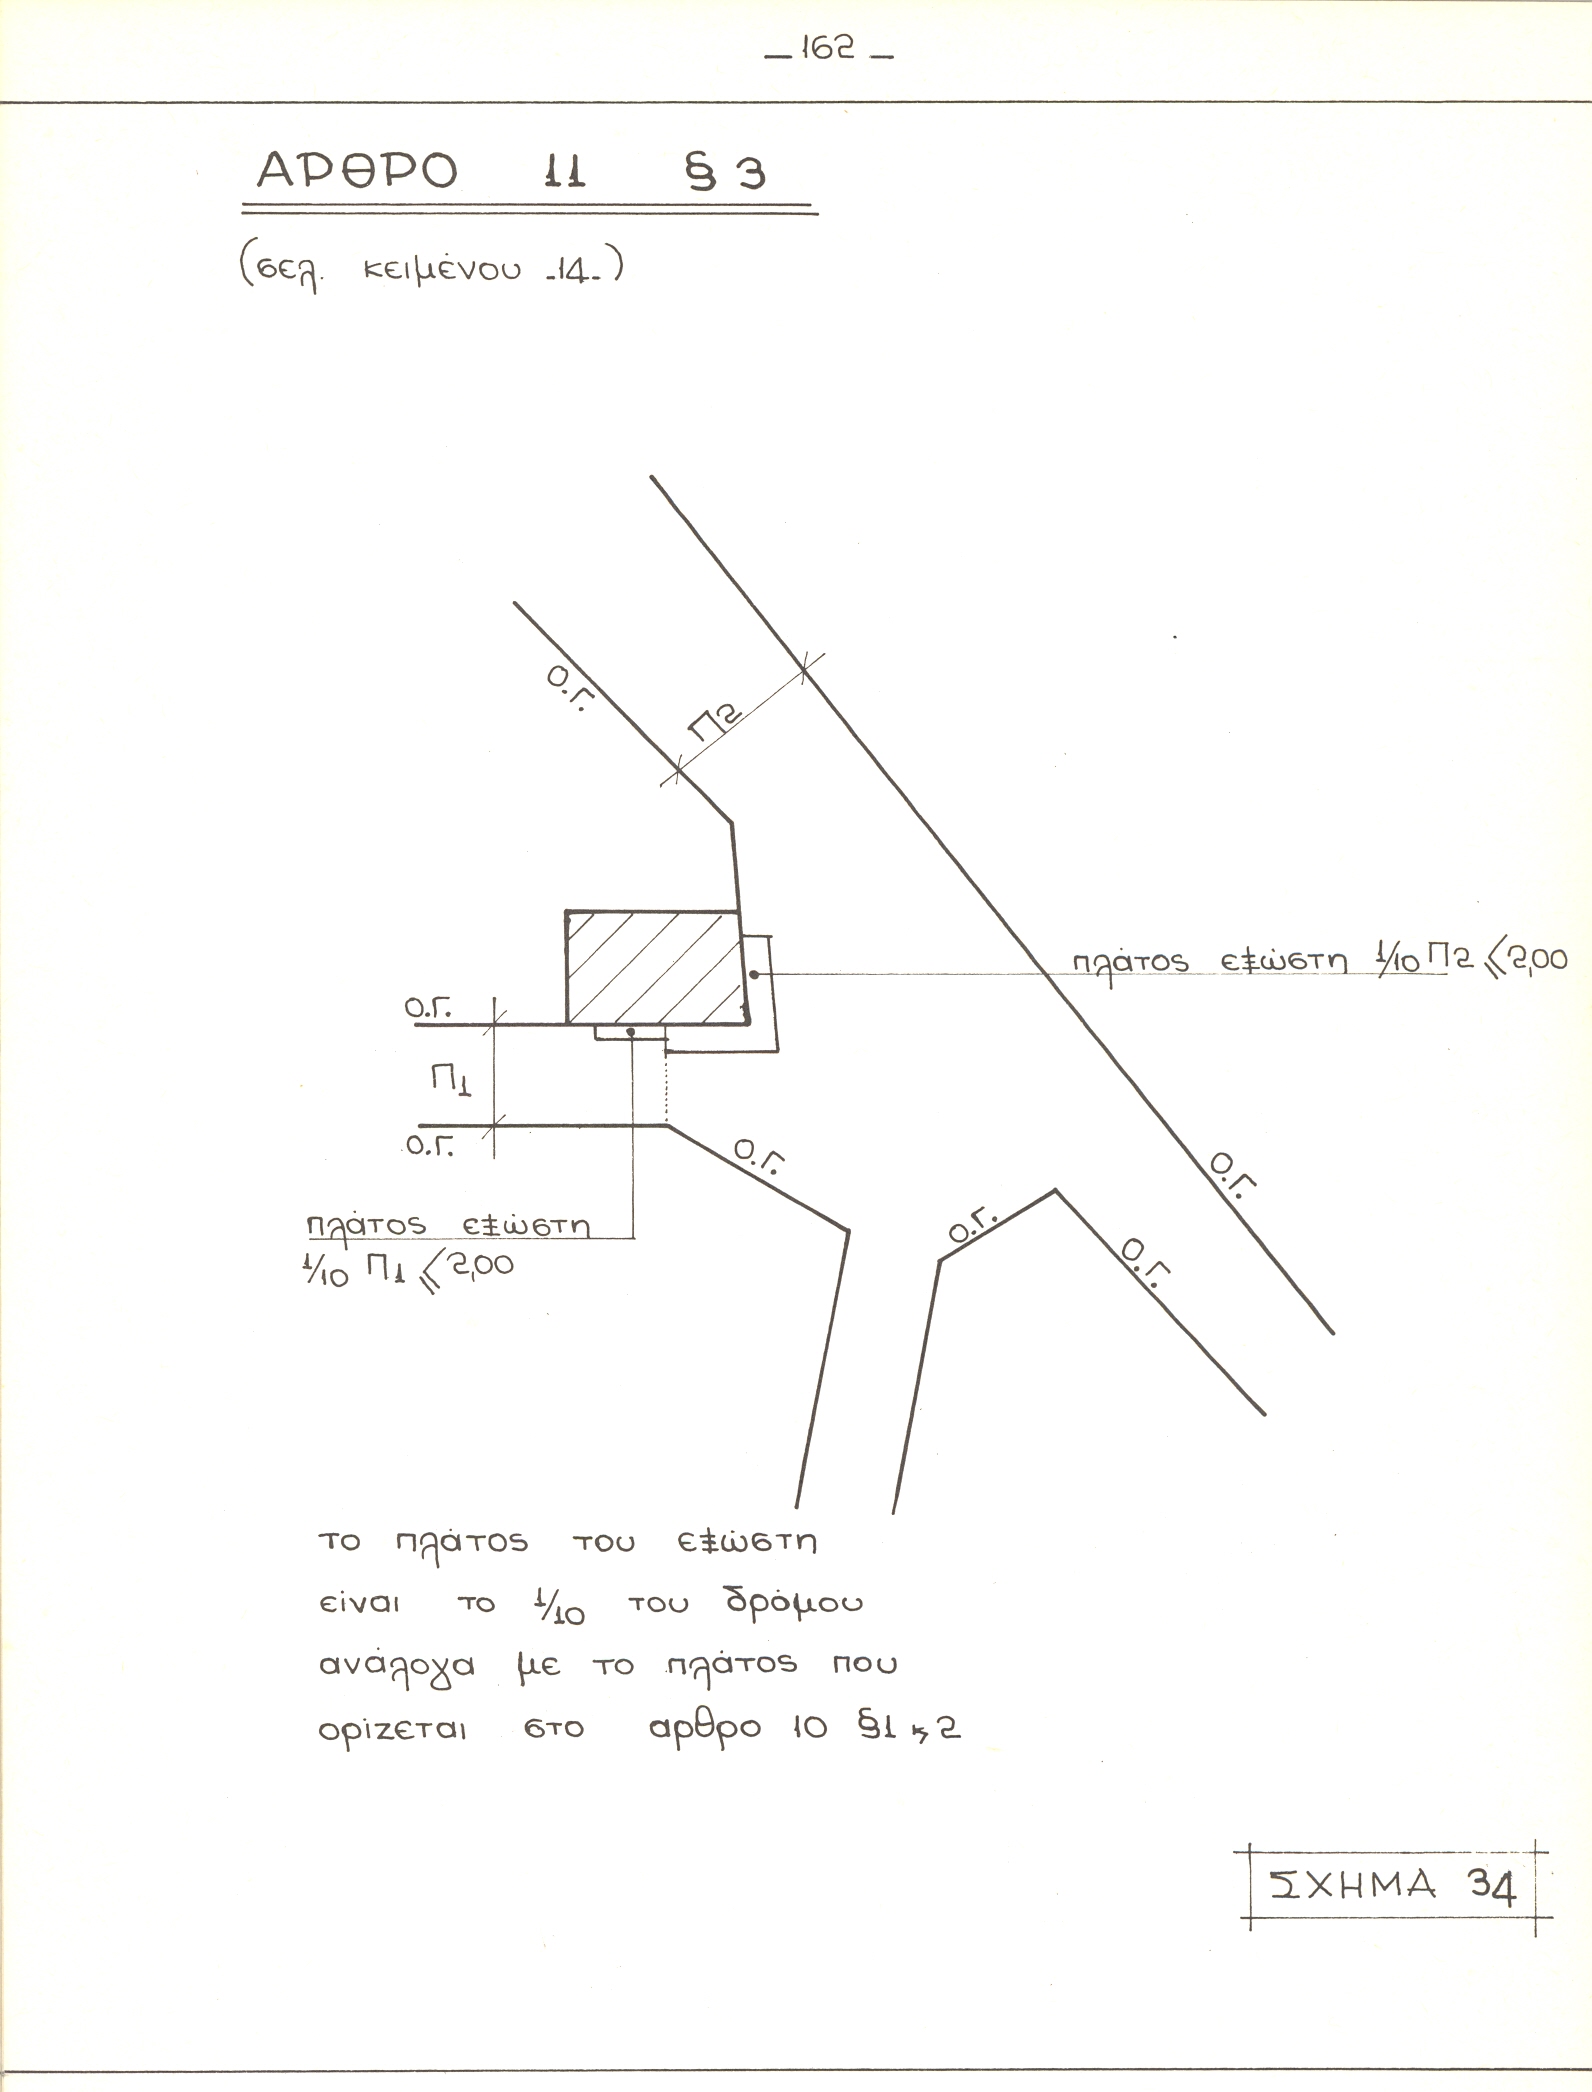 _ 162 _
ΑΡΘΡΟ 11 § 3
(σελ. κειμένου -14-)
Ο.Γ.
Π2
πλάτος εξώστη 1/10 Π2 ⩽ 2,00
Ο.Γ.
Π1
Ο.Γ.
Ο.Γ.
Ο.Γ.
Ο.Γ.
Ο.Γ.
πλάτος εξώστη
1/10 Π1 ⩽ 2,00
το πλάτος του εξώστη
είναι το 1/10 του δρόμου
ανάλογα με το πλάτος που
ορίζεται στο αρθρο 10 §1 ϗ 2
ΣΧΗΜΑ 34